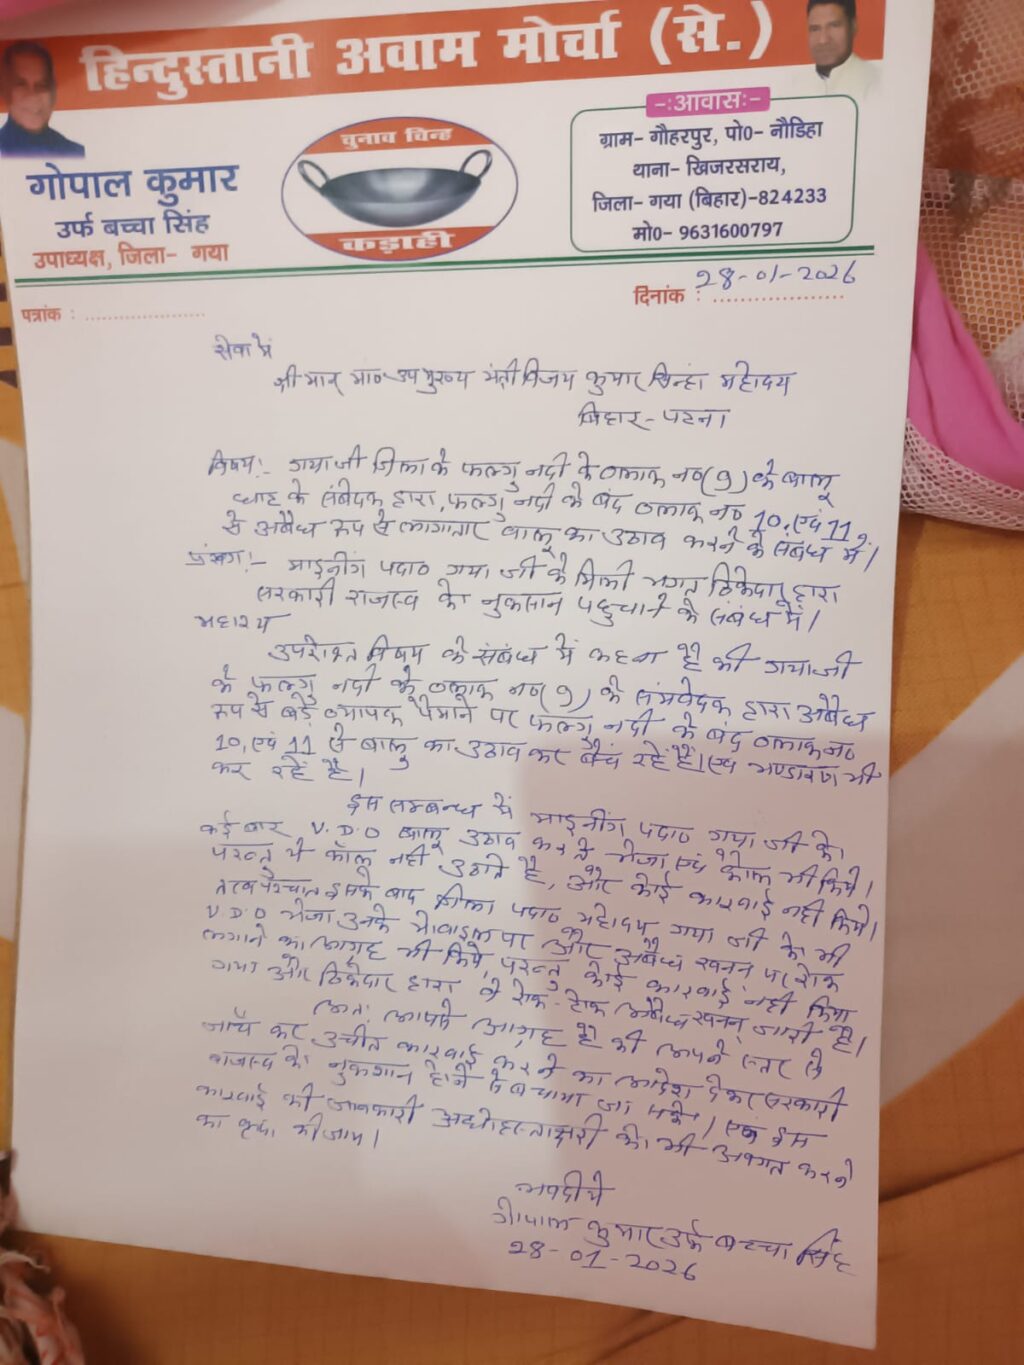 हिन्दुस्तानी अवाम मोर्चा (से.)
गोपाल कुमार
उर्फ बच्चा सिंह
उपाध्यक्ष, जिला- गया
चुनाव चिन्ह
कड़ाही
-:आवासः-
ग्राम- गौहरपुर, पो0- नौडिहा
थाना- खिजरसराय,
जिला- गया (बिहार)-824233
मो0- 9631600797
पत्रांक : ....................
दिनांक : 28-01-2026
सेवा में
श्रीमान् मा० उप मुख्य मंत्री विजय कुमार सिन्हा महोदय
बिहार - पटना
विषय:- गयाजी जिला के फल्गु नदी के ब्लाक न०(9) के बालू
घाट के संवेदक द्वारा, फल्गु नदी के बंद ब्लाक न० 10, एवं 11
से अवैध रूप से लागातार बालू का उठाव करने के संबंध में।
प्रंसग:- माइनींग पदा० गया जी के मिली भगत ठिकेदार द्वारा
सरकारी राजस्व को नुकसान पहुचाने के संबंध में।
महाशय
उपरोक्त विषय के संबंध में कहना है की गयाजी
के फल्गु नदी के ब्लाक न०(9) के संमवेदक द्वारा अवैध
रूप से बड़े व्यापक पैमाने पर फल्गु नदी के बंद ब्लाक न०
10, एवं 11 से बालु का उठाव कर बेंच रहें हैं। एवं भण्डारण भी
कर रहें है।
इस सम्बन्ध में माइनींग पदा० गया जी को
कई बार V.D.O बालू उठाव करते भेजा एवं कॉल भी किये।
परन्तु ये कॉल नही उठाते है, और कोई कारवाई नही किये।
तत्पश्चात इसके बाद जिला पदा० महोदय गया जी को भी
V.D.O भेजा उनके मोवाइल पर और अवैध खनन पर रोक
लगाने का आग्रह भी किये, परन्तु कोई कारवाई नही किया
गया और ठिकेदार द्वारा बे रोक-टोक अवैध खनन जारी है।
अतः आपसे आग्रह है की अपने स्तर से
जाँच कर उचीत कारवाई करने का आदेश देकर सरकारी
राजस्व को नुकशान होने से बचाया जा सके। एवं इस
कारवाई की जानकारी अधोहस्ताक्षरी को भी अवगत करने
का कृपा की जाय।
भवदीये
गोपाल कुमार उर्फ बच्चा सिंह
28-01-2026